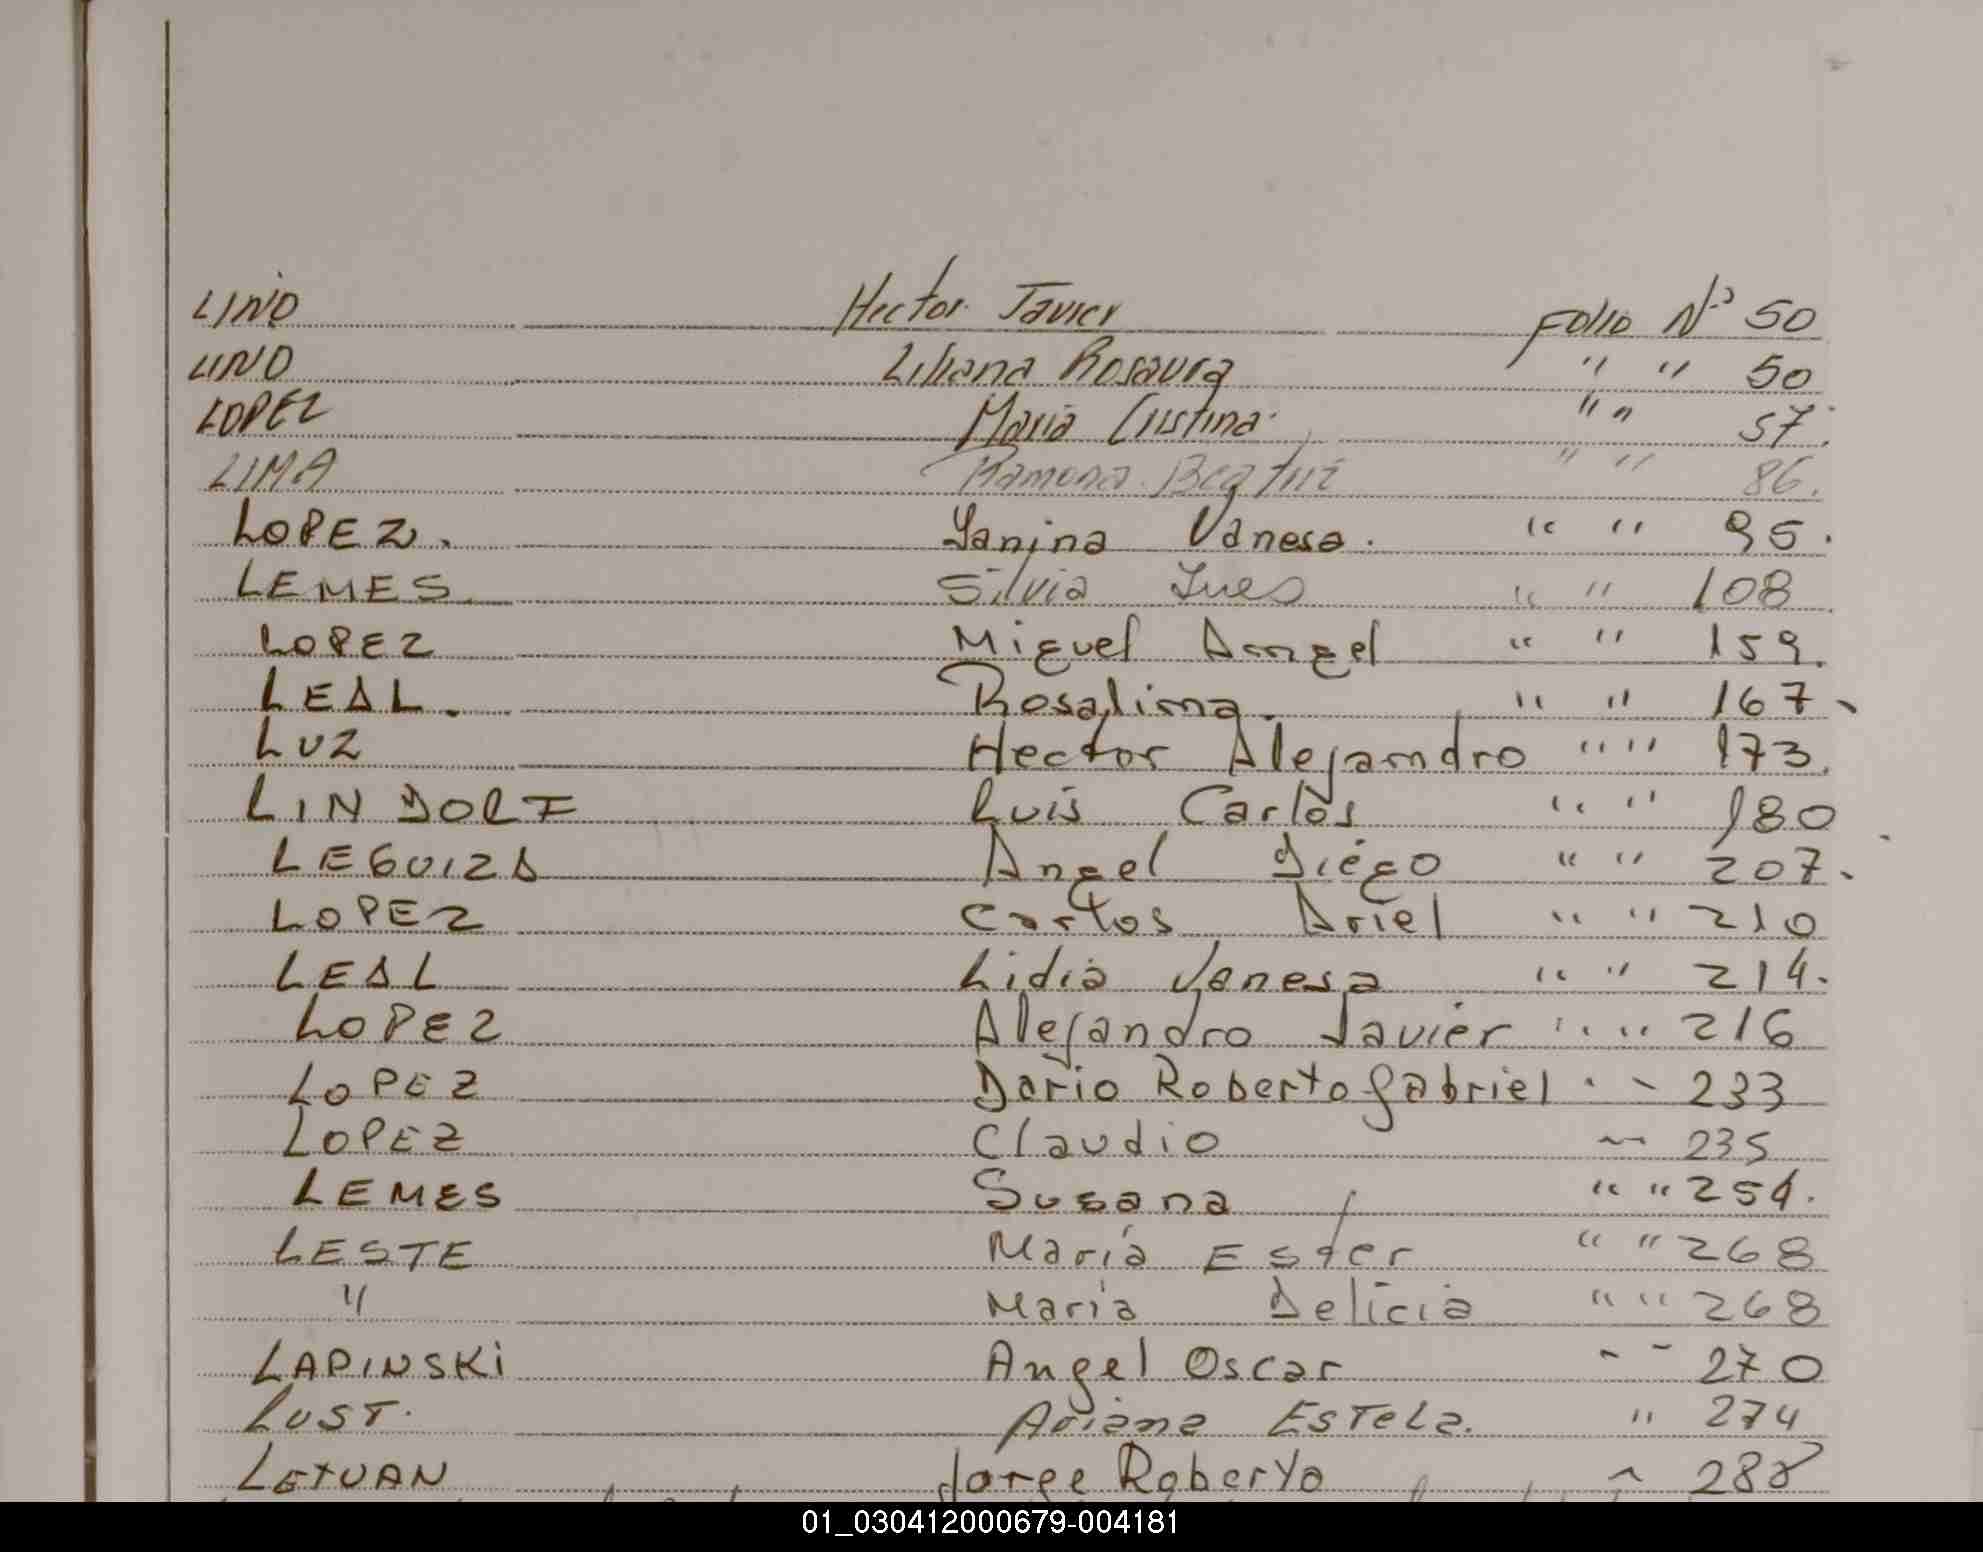 LINO Hector Javier Folio Nº 50
LINO Liliana Rosaura " " 50
LOPEZ Maria Cristina " " 57.
LIMA Ramona Beatriz " " 86.
LOPEZ. Yanina Vanesa. " " 95.
LEMES Silvia Ines " " 108.
LOPEZ Miguel Angel " " 159.
LEAL. Rosalina. " " 167.
LUZ Hector Alejandro " " 173.
LINDORF Luis Carlos " " 180
LEGUIZA Angel Diego " " 207.
LOPEZ Carlos Ariel " " 210
LEAL Lidia Vanesa " " 214.
LOPEZ Alejandro Javier " " 216
LOPEZ Dario Roberto Gabriel " " 233
LOPEZ Claudio " 235
LEMES Susana " " 254.
LESTE María Ester " " 268
" María Delicia " " 268
LAPINSKi Angel Oscar " " 270
LUST. Ariana ESTeLa. " 274
Jorge Roberto " 288
01_030412000679-004181